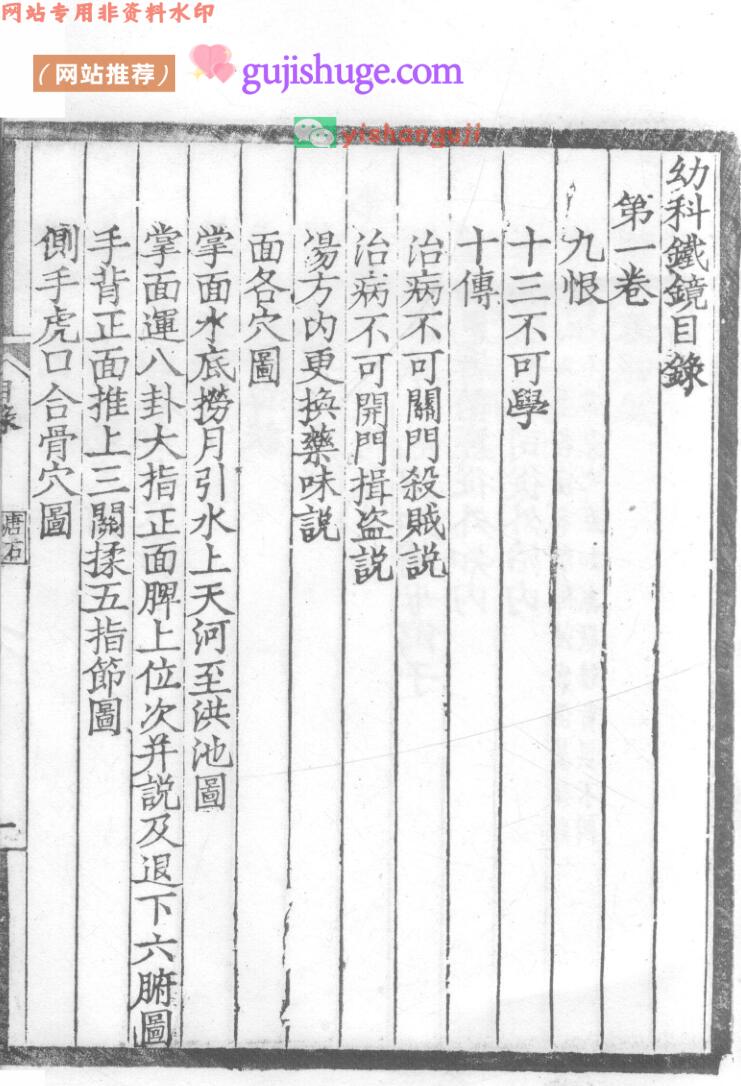 网站专用非资料水印
（网站推荐） gujishuge.com
yishanguji
幼科鐵鏡目錄
第一卷
九恨
十三不可學
十傳
治病不可關門殺賊説
治病不可開門揖盗説
湯方内更換藥味説
面各穴圖
掌面水底撈月引水上天河至洪池圖
掌面運八卦大指正面脾上位次并説及退下六腑圖
手背正面推上三關揉五指節圖
側手虎口合骨穴圖
目錄
一